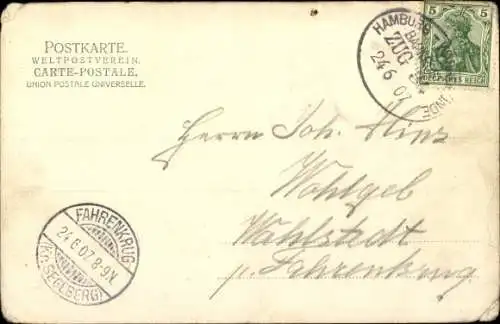 POSTKARTE.
WELTPOSTVEREIN.
CARTE-POSTALE.
UNION POSTALE UNIVERSELLE.
HAMBURG
ZUG
24 6 07
5 5
DEUTSCHES REICH
Herrn Joh. Hinz
Wohlgeb
Wahlstedt
p. Fahrenkrug
FAHRENKRUG
24 6 07 8-9N
(KR. SEGEBERG)